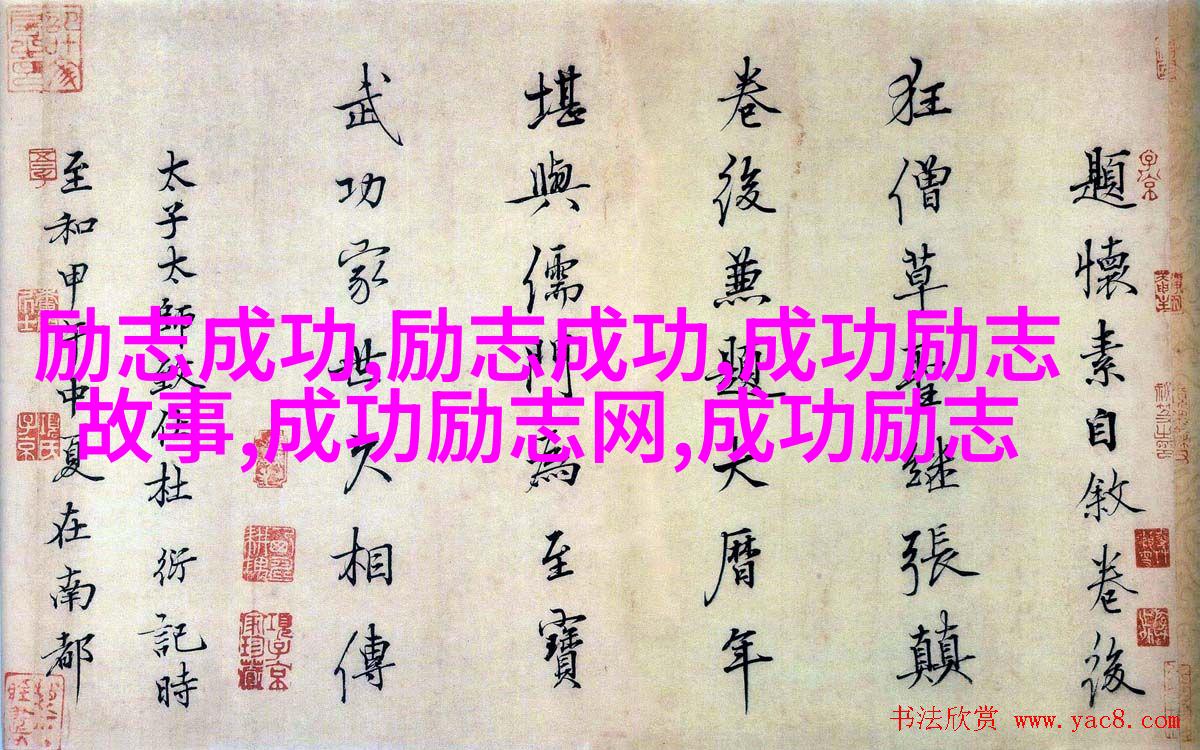 題懷素自敘卷後
狂僧草聖继張顛
卷後兼題大曆年
堪與儒門為至寶
武功家世久相傳
太子太師致仕杜衍記時
至和甲午中夏在南都
励志成功,励志成功,成功励志
故事,成功励志网,成功励志
书法欣赏 www.yac8.com